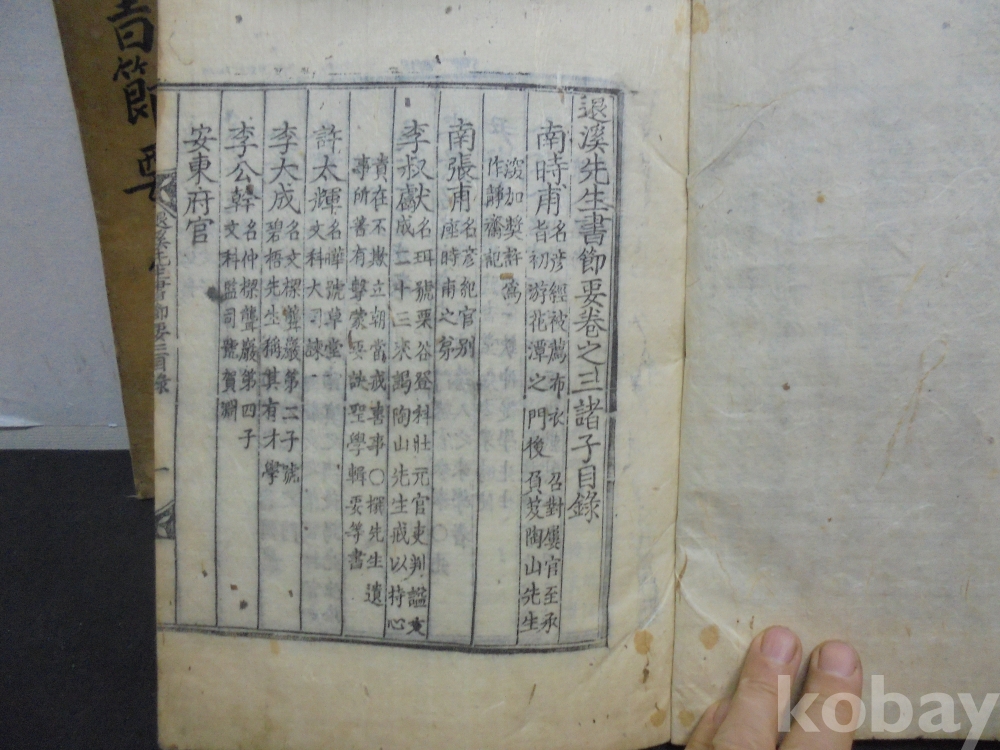 退溪先生書節要卷之三諸子目錄
南時甫 名彦經被薦布衣 召對屢官至承
旨初游花潭之門後負笈陶山先生
深加奬許爲
作靜齋記
南張甫 名彦紀官別
座時甫之弟
李叔獻 名珥號栗谷登科壯元官吏判諡文
成二十三來謁陶山先生戒以持心
貴在不欺立朝當戒喜事〇撰先生遺
事所著有擊蒙要訣聖學輯要等書
許太輝 名曄號草堂
文科大司諫
李大成 名文樑聾巖第二子號
碧梧先生稱其有才學
李公幹 名仲樑聾巖第四子
文科監司號賀淵
安東府官
退溪先生書節要三目錄
一
書節要
kobay